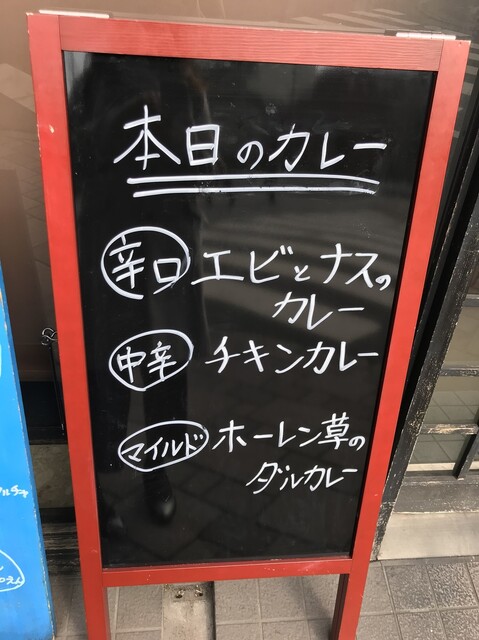 本日のカレー
辛口 エビとナスの
カレー
中辛 チキンカレー
マイルド ホーレン草の
ダルカレー